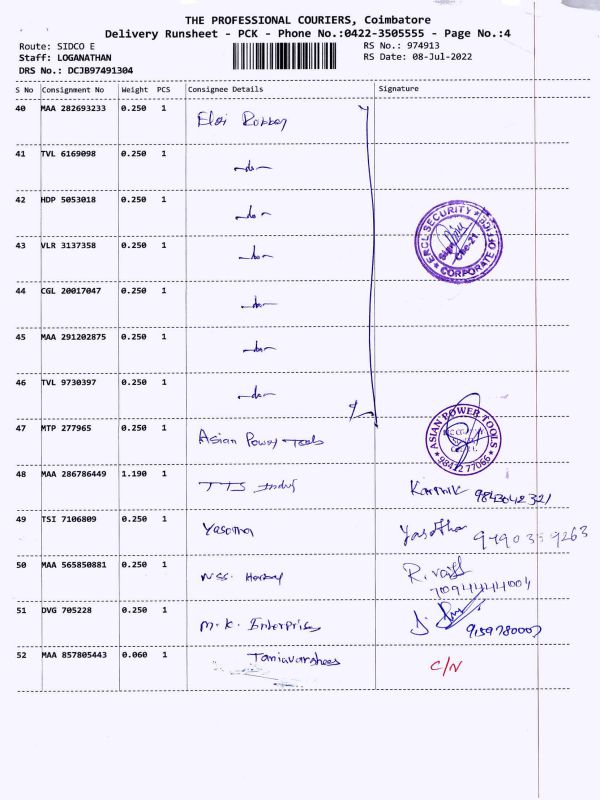 THE PROFESSIONAL COURIERS, Coimbatore
Delivery Runsheet - PCK - Phone No.:0422-3505555 - Page No.:4
Route: SIDCO E
RS No.: 974913
Staff: LOGANATHAN
RS Date: 08-Jul-2022
DRS No.: DCJB97491304
S No Consignment No Weight PCS Consignee Details Signature
40 MAA 282693233 0.250 1 Rubber
41 TVL 6169098 0.250 1 -do-
42 HDP 5053018 0.250 1 -do-
43 VLR 3137358 0.250 1 -do-
ERCL SECURITY CORPORATE OFFICE
44 CGL 20017047 0.250 1 -do-
45 MAA 291202875 0.250 1 -do-
46 TVL 9730397 0.250 1 -do-
47 MTP 277965 0.250 1 Asian Power Tools ASIAN POWER TOOLS 98422 77066
48 MAA 286786449 1.190 1 TTS Indus Karthik 9843042321
49 TSI 7106809 0.250 1 Yasotha Yasotha
50 MAA 565850881 0.250 1 NSS. Herbal R. 7094444004
51 DVG 705228 0.250 1 M.K. Enterprises 9159780007
52 MAA 857805443 0.060 1 C/N